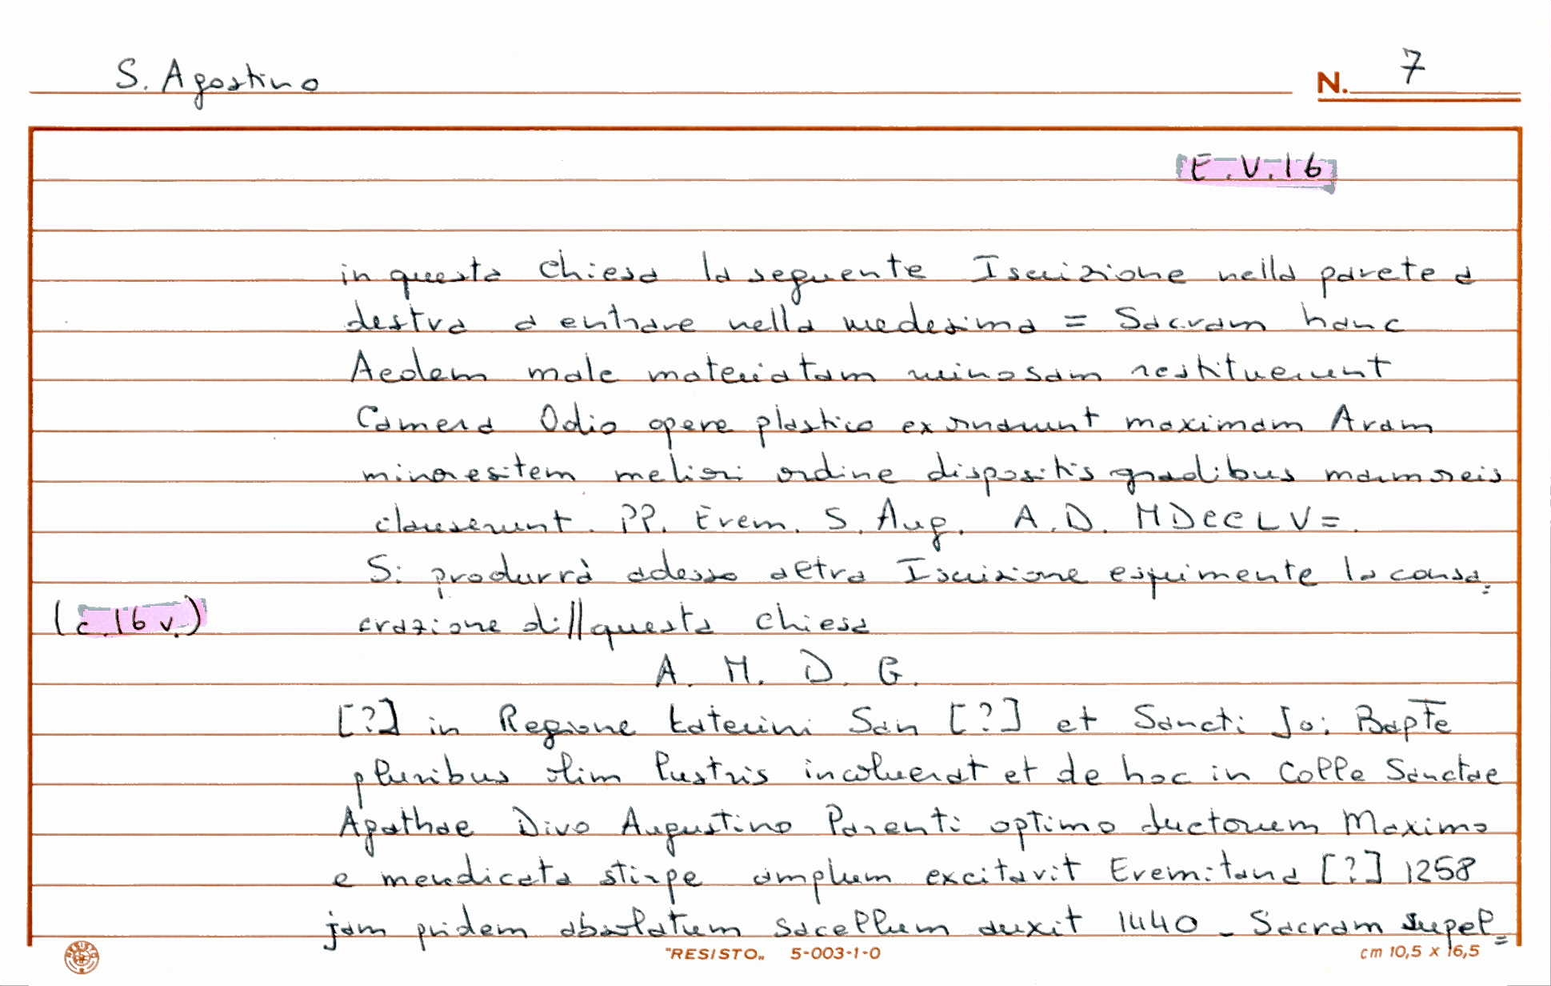 S. Agostino
N. 7
E.V.16
in questa chiesa la seguente Iscrizione nella parete a
destra a entrare nella medesima = Sacram hanc
Aedem male materiatam ruinosam restituerunt
Camera Odio opere plastico exornarunt maximam Aram
minoresitem meliori ordine dispositis gradibus marmoreis
clauserunt. PP. Erem. S. Aug. A.D. MDCCLV=.
Si produrrà adesso altra Iscrizione esprimente la consa=
(c. 16 v.)
crazione di//questa chiesa
A. M. D. G.
[?] in Regione Laterini San [?] et Sancti Jo: Bapte
pluribus olim lustris incoluerat et de hoc in Colle Sanctae
Agathae Divo Augustino Parenti optimo Auctorum Maximo
e mendicata stirpe amplum excitavit Eremitana [?] 1258
jam pridem absolutum sacellum auxit 1440 - Sacram supel=
"RESISTO„ 5-003-1-0
cm 10,5 x 16,5